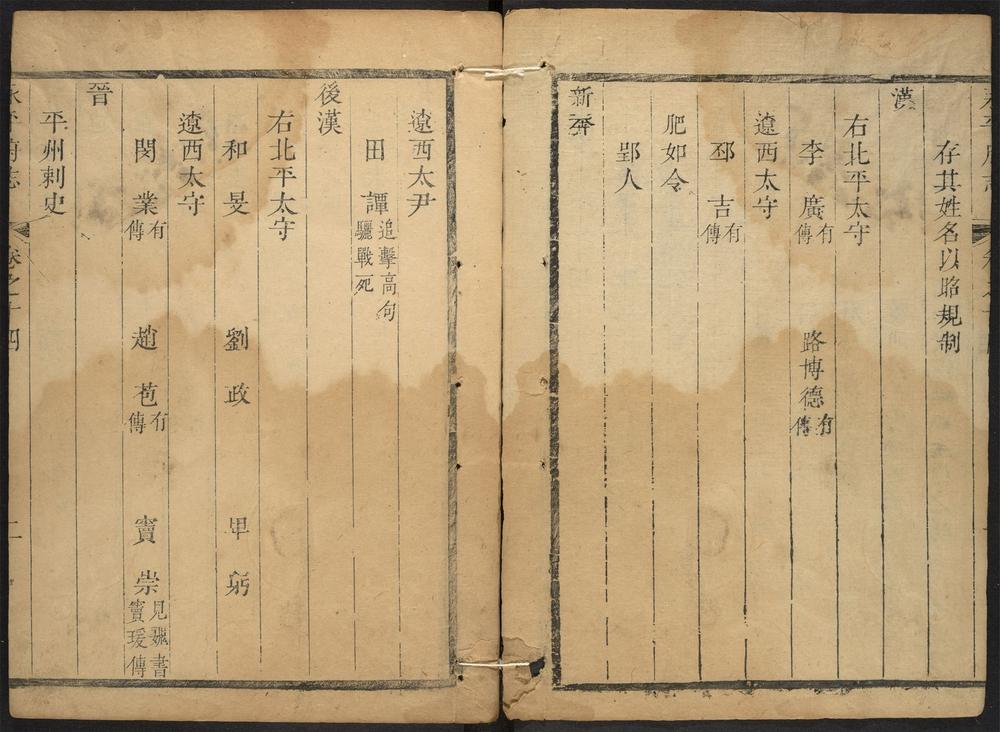 存其姓名以昭規制
漢
右北平太守
李廣有傳 路博德有傳
遼西太守
邳吉有傳
肥如令
郢人
新莽
遼西太尹
田譚追擊高句驪戰死
後漢
右北平太守
和旻 劉政 卑躬
遼西太守
閔業有傳 趙苞有傳 竇崇見魏書竇瑗傳
晉
平州刺史
永平府志 卷之十四 二